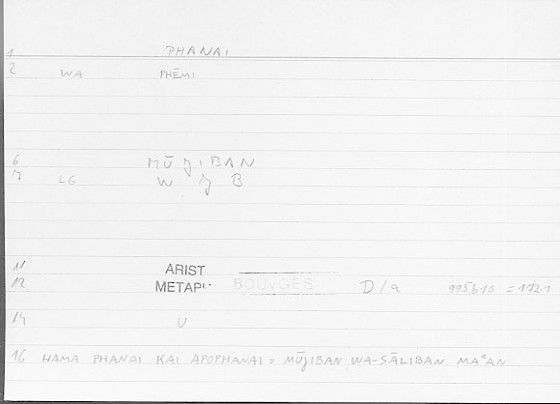 1 PHANAI
2 WA PHĒMI
6 MŪJIBAN
7 LG W J B
11 ARIST
12 METAPH BOUYGES D/a 995b10 = 172.1
14 V
16 HAMA PHANAI KAI APOPHANAI = MŪJIBAN WA-SĀLIBAN MAʿAN